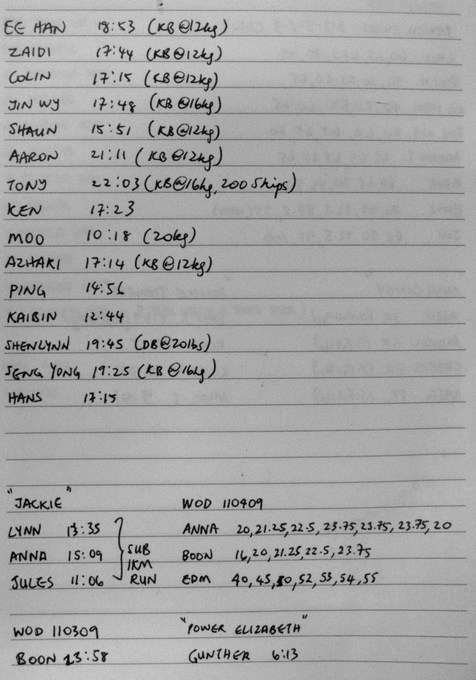 EE HAN 18:53 (KB@12kg)
ZAIDI 17:44 (KB@12kg)
COLIN 17:15 (KB@12kg)
JIN WY 17:48 (KB@16kg)
SHAUN 15:51 (KB@12kg)
AARON 21:11 (KB@12kg)
TONY 22:03 (KB@16kg, 200 Skips)
KEN 17:23
MOO 10:18 (20kg)
AZHARI 17:14 (KB@12kg)
PING 14:56
KAIBIN 12:44
SHENLYNN 19:45 (DB@20lbs)
SENG YONG 19:25 (KB@16kg)
HANS 17:15
"JACKIE" WOD 110409
LYNN 13:35 ANNA 20, 21.25, 22.5, 23.75, 23.75, 23.75, 20
ANNA 15:09 SUB BOON 16, 20, 21.25, 22.5, 23.75
1KM
JULES 11:06 RUN EDM 40, 45, 50, 52, 53, 54, 55
WOD 110309 "POWER ELIZABETH"
BOON 23:58 GUNTHER 6:13